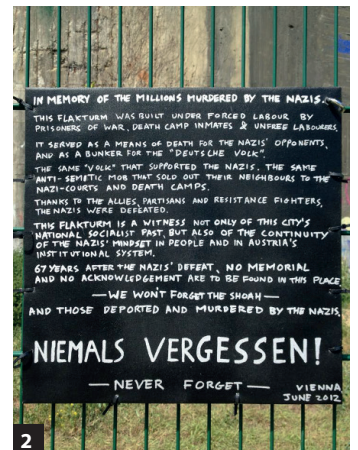 IN MEMORY OF THE MILLIONS MURDERED BY THE NAZIS.
THIS FLAKTURM WAS BUILT UNDER FORCED LABOUR BY
PRISONERS OF WAR, DEATH CAMP INMATES & UNFREE LABOURERS.
IT SERVED AS A MEANS OF DEATH FOR THE NAZIS' OPPONENTS,
AND AS A BUNKER FOR THE "DEUTSCHE VOLK".
THE SAME "VOLK" THAT SUPPORTED THE NAZIS. THE SAME
ANTI-SEMETIC MOB THAT SOLD OUT THEIR NEIGHBOURS TO THE
NAZI-COURTS AND DEATH CAMPS.
THANKS TO THE ALLIES, PARTISANS AND RESISTANCE FIGHTERS,
THE NAZIS WERE DEFEATED.
THIS FLAKTURM IS A WITNESS NOT ONLY OF THIS CITY'S
NATIONAL SOCIALIST PAST, BUT ALSO OF THE CONTINUITY
OF THE NAZIS' MINDSET IN PEOPLE AND IN AUSTRIA'S
INSTITUTIONAL SYSTEM.
67 YEARS AFTER THE NAZIS' DEFEAT, NO MEMORIAL
AND NO ACKNOWLEDGEMENT ARE TO BE FOUND IN THIS PLACE
—WE WON'T FORGET THE SHOAH—
AND THOSE DEPORTED AND MURDERED BY THE NAZIS.
NIEMALS VERGESSEN!
—NEVER FORGET—
VIENNA
JUNE 2012
2